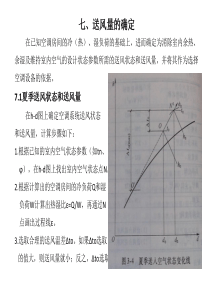 七、送风量的确定
在已知空调房间的冷（热）、湿负荷的基础上，进而确定为消除室内余热、
余湿及维持室内空气的设计状态参数所需的送风状态和送风量，并将其作为选择
空调设备的依据。
7.1夏季送风状态和送风量
在h-d图上确定空调系统送风状态
和送风量，计算步骤如下：
1.根据已知的室内空气状态参数（如tn、
φ），在h-d图上找出室内空气状态点N。
2.根据计算出的空调房间的冷负荷Q和湿
负荷W计算出热湿比ε=Q/W，再通过N
点画出过程线ε。
3.选取合理的送风温差Δto，如果Δto选取
的值大，则送风量就小；反之，Δto选取
图 3-4 夏季送入空气状态变化线